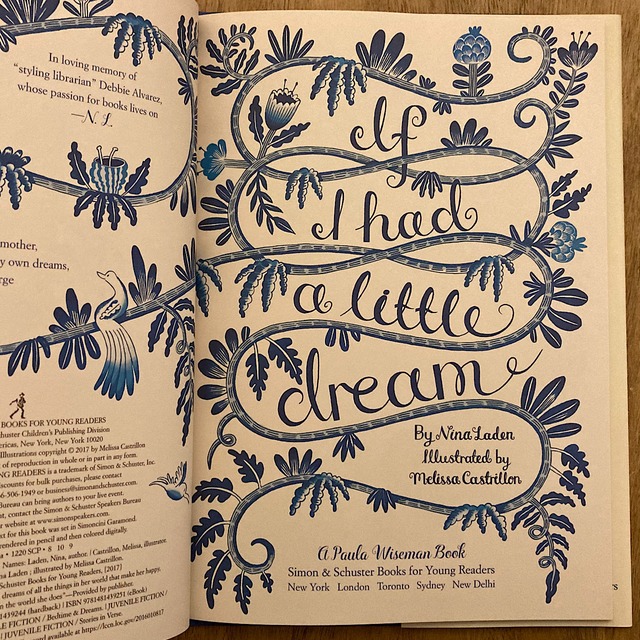 In loving memory of
"styling librarian" Debbie Alvarez,
whose passion for books lives on
—N. L.
mother,
own dreams,
BOOKS FOR YOUNG READERS
Children's Publishing Division
New York, New York 10020
Illustrations copyright © 2017 by Melissa Castrillon
of reproduction in whole or in part in any form.
READERS is a trademark of Simon & Schuster, Inc.
discounts for bulk purchases, please contact
6-506-1949 or business@simonandschuster.com.
Bureau can bring authors to your live event.
contact the Simon & Schuster Speakers Bureau
website at www.simonspeakers.com.
for this book was set in Simoncini Garamond.
rendered in pencil and then colored digitally.
1220 SCP • 8 10 9
Names: Laden, Nina, author. | Castrillon, Melissa, illustrator.
Laden ; illustrated by Melissa Castrillon.
Schuster Books for Young Readers, [2017]
dreams of all the things in her world that make her happy.
the world she does"—Provided by publisher.
1439244 (hardback) | ISBN 9781481439251 (eBook)
FICTION / Bedtime & Dreams. | JUVENILE FICTION /
JUVENILE FICTION / Stories in Verse.
available at https://lccn.loc.gov/2016010817
If
I had
a little
dream
By Nina Laden
Illustrated by
Melissa Castrillon
A Paula Wiseman Book
Simon & Schuster Books for Young Readers
New York London Toronto Sydney New Delhi